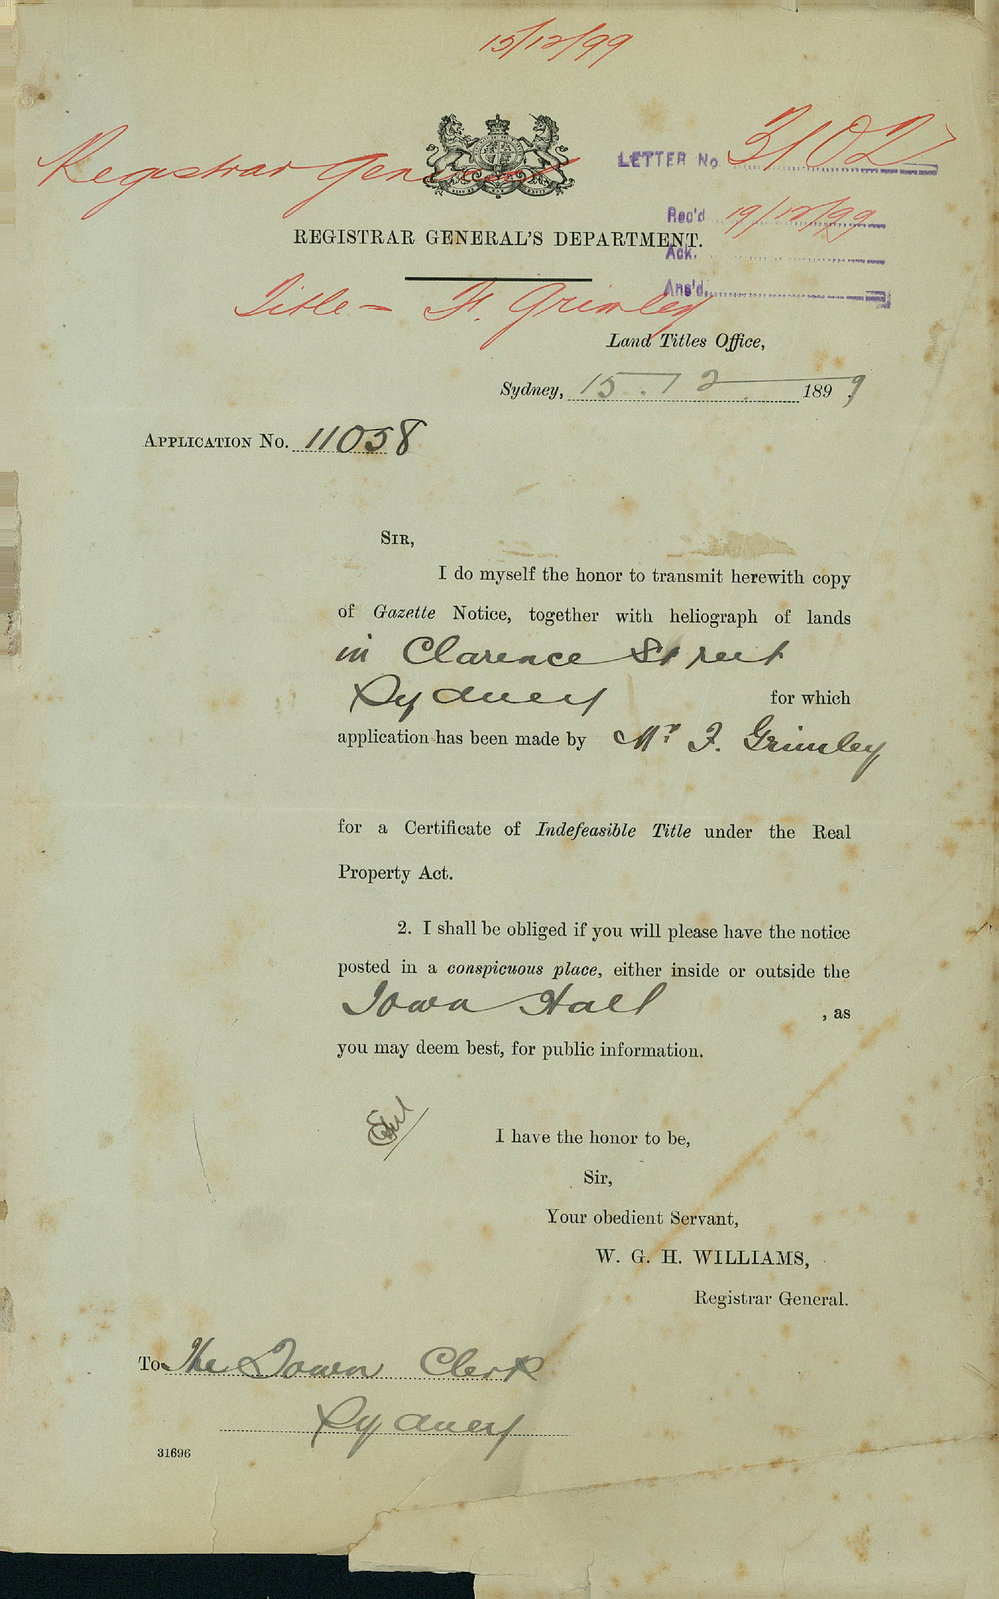 15/12/99
Registrar General
LETTER No. 3102
Rec'd 19/12/99
REGISTRAR GENERAL'S DEPARTMENT.
Ack.
Ans'd.
Title - F. Grimley
Land Titles Office,
Sydney, 15.12 1899
APPLICATION No. 11058
SIR,
I do myself the honor to transmit herewith copy
of Gazette Notice, together with heliograph of lands
in Clarence Street
Sydney for which
application has been made by Mr. F. Grimley
for a Certificate of Indefeasible Title under the Real
Property Act.
2. I shall be obliged if you will please have the notice
posted in a conspicuous place, either inside or outside the
Town Hall , as
you may deem best, for public information.
I have the honor to be,
Sir,
Your obedient Servant,
W. G. H. WILLIAMS,
Registrar General.
To The Town Clerk
Sydney
31696